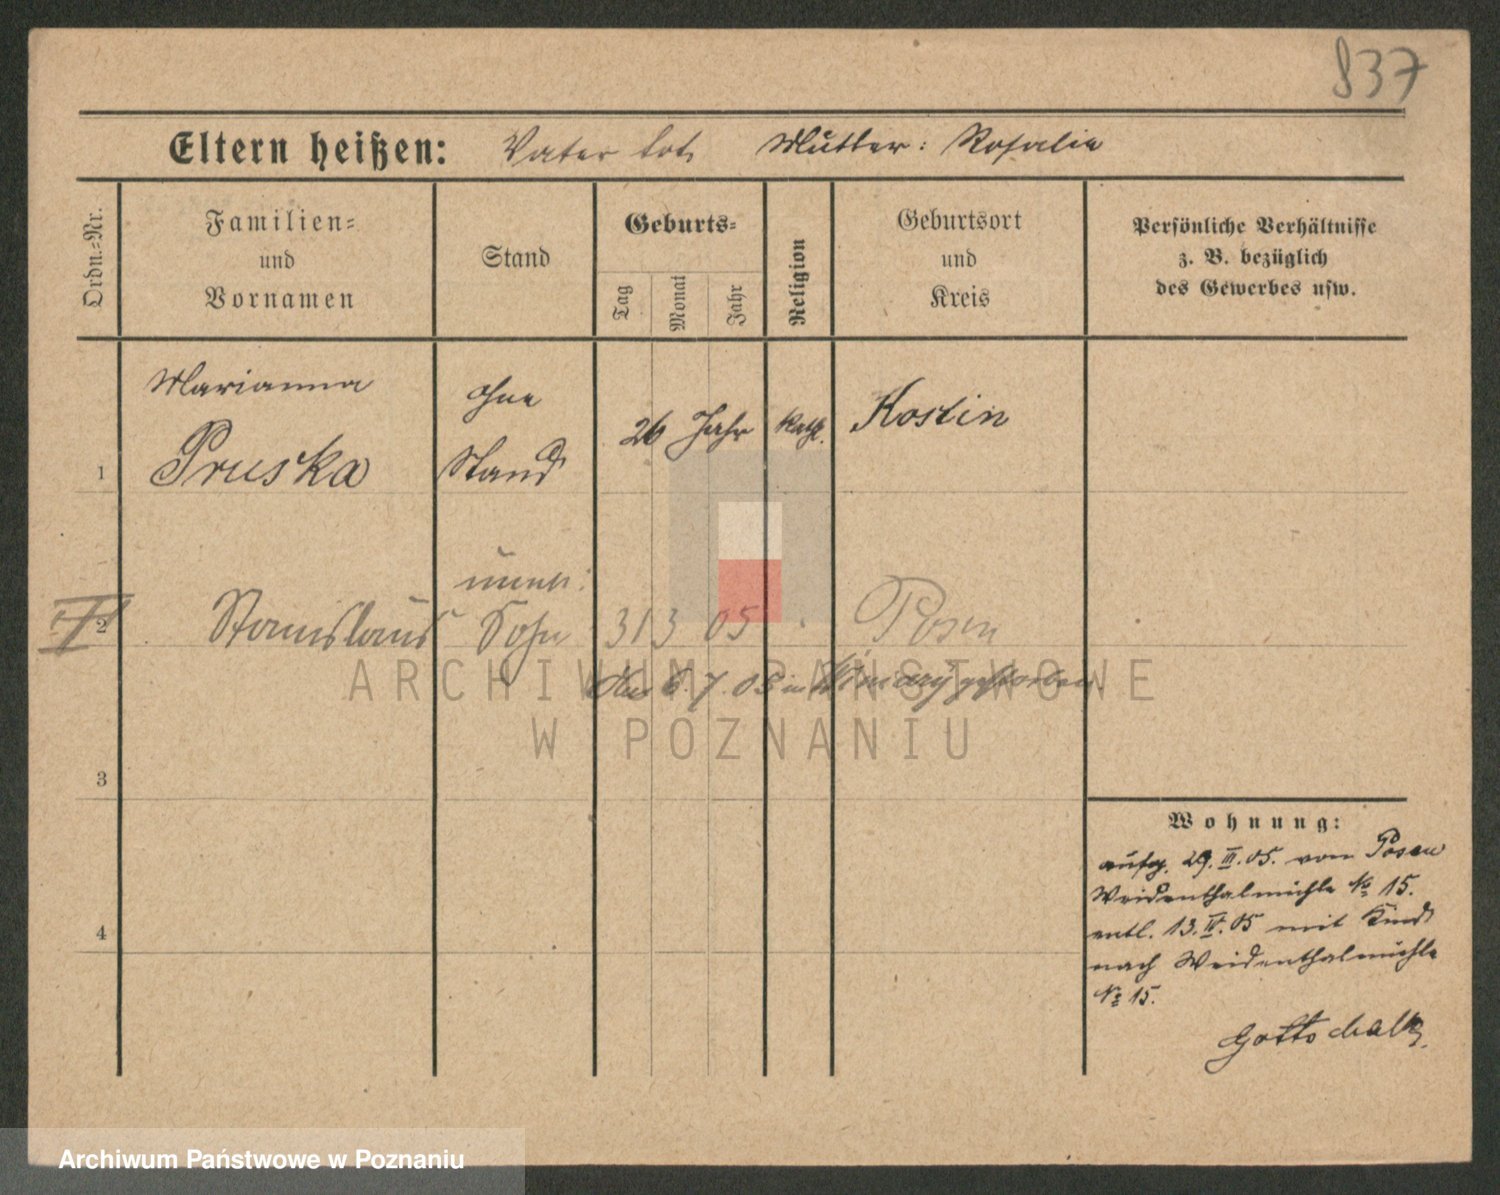 837
Eltern heißen: Vater tot, Mutter: Rosalie
Ordn.=Nr.
Familien=
und
Vornamen
Stand
Geburts=
Tag
Monat
Jahr
Religion
Geburtsort
und
Kreis
Persönliche Verhältnisse
z. B. bezüglich
des Gewerbes usw.
Marianna
Pruska
ohne
Stand
1
26 Jahr
kath.
Kostin
unehl.
II
2
Stanislaus
Sohn
31 3 05
Posen
den 6. 7. 05 in Winiary gestorben
3
4
Wohnung:
aufg. 29. III. 05. von Posen
Weidenthalmühle No 15.
entl. 13. IV. 05 mit Kind
nach Weidenthalmühle
No 15.
Gottschalk.
ARCHIWUM PAŃSTWOWE
W POZNANIU
Archiwum Państwowe w Poznaniu